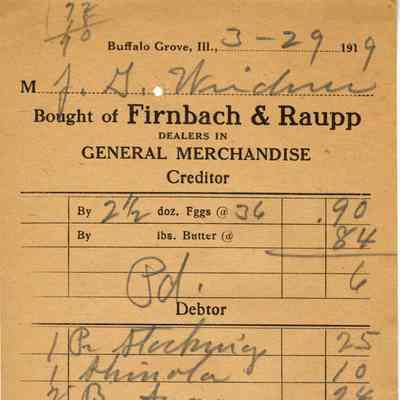 72
90
Buffalo Grove, Ill., 3-29 1919
M J. G. Weidner
Bought of Firnbach & Raupp
DEALERS IN
GENERAL MERCHANDISE
Creditor
By 2½ doz. Eggs @ 36 .90
By lbs. Butter @ 84
Pd. 6
Debtor
1 Pr Stocking 25
1 Shinola 10
2 24